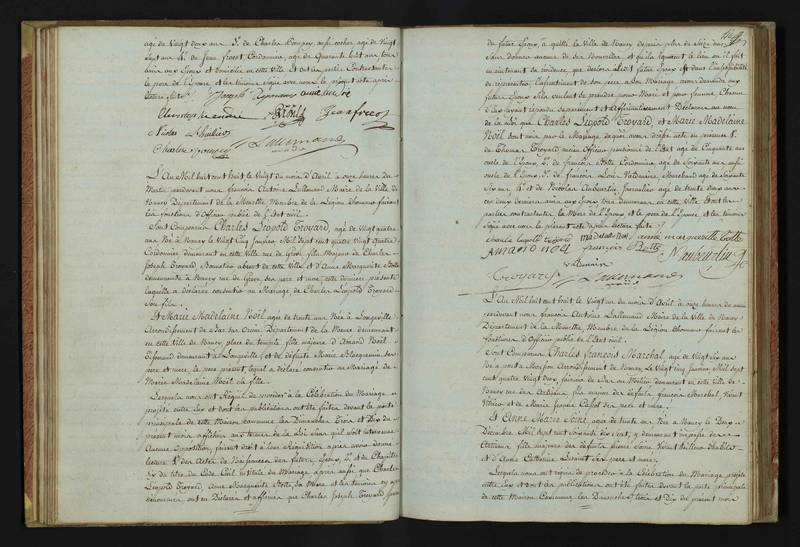 agé de Vingt deux ans 3.° de Charles Pompey, aussi cocher agé de Vingt
Sept ans 4.° de Jean Frost Cordonnier, agé de Quarante huit ans tous
amis aux Epoux et domiciliés en cette Ville Et ont les parties Contractantes
le pere de l'Epouse et les temoins Signé avec nous le présent acte après
lecture faite
Nicolas
Charles Pompey Lallemand
L'An Mil huit cent huit le Vingt du mois d'Avril à onze heures du
Matin pardevant nous françois Antoine Lallemand Maire de la Ville de
Nancy Département de la Meurthe Membre de la Légion d'honneur faisant
les fonctions d'Officier public de l'Etat civil.
Sont Comparus Charles Léopold Troyard, agé de Vingt quatre
ans Né à Nancy le Vingt Cinq Janvier Mil Sept cent quatre Vingt quatre
Cordonnier demeurant en cette Ville rue de Grève fils Majeur de Charles
Joseph Troyard Bonnetier absent de cette Ville et d'Anne Marguerite Botte
demeurante à Nancy rue de Grève ses pere et mere, cette derniere présente
laquelle a déclaré consentir au Mariage de Charles Léopold Troyard
Son fils.
Et Marie Madelaine Noël agée de trente ans Née à Longeville
Arrondissement de Bar sur Ornin Département de la Meuse demeurant
en cette Ville de Nancy place du temple, fille majeure d'Amand Noël
demeurant à Longeville et de défunte Marie Blacquenin ses
pere et mere, le pere présent, lequel a déclaré consentir au Mariage de
Marie Madelaine Noël sa fille.
Lesquels nous ont Requis de procéder à la Célébration du Mariage
projetté entre eux et dont les publications ont été faites devant la porte
principale de cette Maison commune les Dimanches Trois et Dix du
présent mois affichées aux termes de la Loi Sans qu'il soit intervenu
Aucune Opposition, faisant droit à leur Réquisition après avoir donné
lecture 1.° des Actes de Naissances des futurs Epoux 2.° et du Chapitre
Six du titre du Code Civil Intitulé du Mariage après aussi que Charles
Léopold Troyard, Anne Marguerite Botte, Sa Mere et les témoins cy après
dénommés ont en Déclaré et affirmé que Charles Joseph Troyard pere
du futur Epoux a quitté la Ville de Nancy depuis plus de Seize ans
Sans donner aucune de Ses Nouvelles et qu'ils ignorent le lieu où il fait
maintenant Sa résidence que dès lors ledit futur Epoux est dans l'impossibilité
de représenter l'assentiment de son pere à son Mariage avons demandé aux
futurs Epoux s'ils veulent se prendre pour Mari et pour femme Chacun
d'eux ayant répondu séparément et affirmativement Déclarons au nom
de la Loi que Charles Léopold Troyard, et Marie Madelaine
Noël Sont unis par le Mariage de quoi avons dressé acte en présence 1.°
de Thomas Troyard ancien Officier pensionné de l'Etat agé de Cinquante ans
oncle de l'Epoux 2.° de françois Botte Cordonnier agé de Soixante ans aussi
oncle de l'Epoux 3.° de françois Louis Valdenaire, Marchand agé de Soixante
Six ans 4.° et de Nicolas Aubertin, Journalier agé de trente deux ans
ces deux derniers amis aux Epoux tous demeurans en cette Ville Et ont les
parties contractantes la Mere de l'Epoux et le pere de l'Epouse et les témoins
Signé avec nous le présent acte après lecture faite
charle leopold troyard madelaine noel anne marguerite botte
AMAND NOEL francois Botte N aubertin
Troyard Lallemand
L'An Mil huit cent huit le Vingt un du mois d'Avril à onze heures du matin
pardevant nous françois Antoine Lallemand Maire de la Ville de Nancy
Département de la Meurthe, Membre de la Légion d'honneur faisant les
fonctions d'Officier public de l'Etat civil.
Sont Comparus Charles François Marchal agé de Vingt Six ans
Né à pont à Mousson Arrondissement de Nancy Le Vingt cinq Janvier Mil Sept
cent quatre Vingt deux demeurant en cette ville de
Nancy rue des Artisans, fils majeur des défunts françois Marchal
et de Marie Jeanne ses pere et mere.
Et Anne Marie Soiné, agée de trente ans Née à Nancy le Deux
Décembre Mil Sept cent Soixante dix Sept, y demeurant
fille majeure des défunts Pierre Soiné
et d'Anne Catherine ses pere et mere.
Lesquels nous ont requis de procéder à la Célébration du Mariage projetté
entre eux et dont les publications ont été faites devant la porte principale
de cette Maison Commune les Dimanches trois et Dix du présent mois